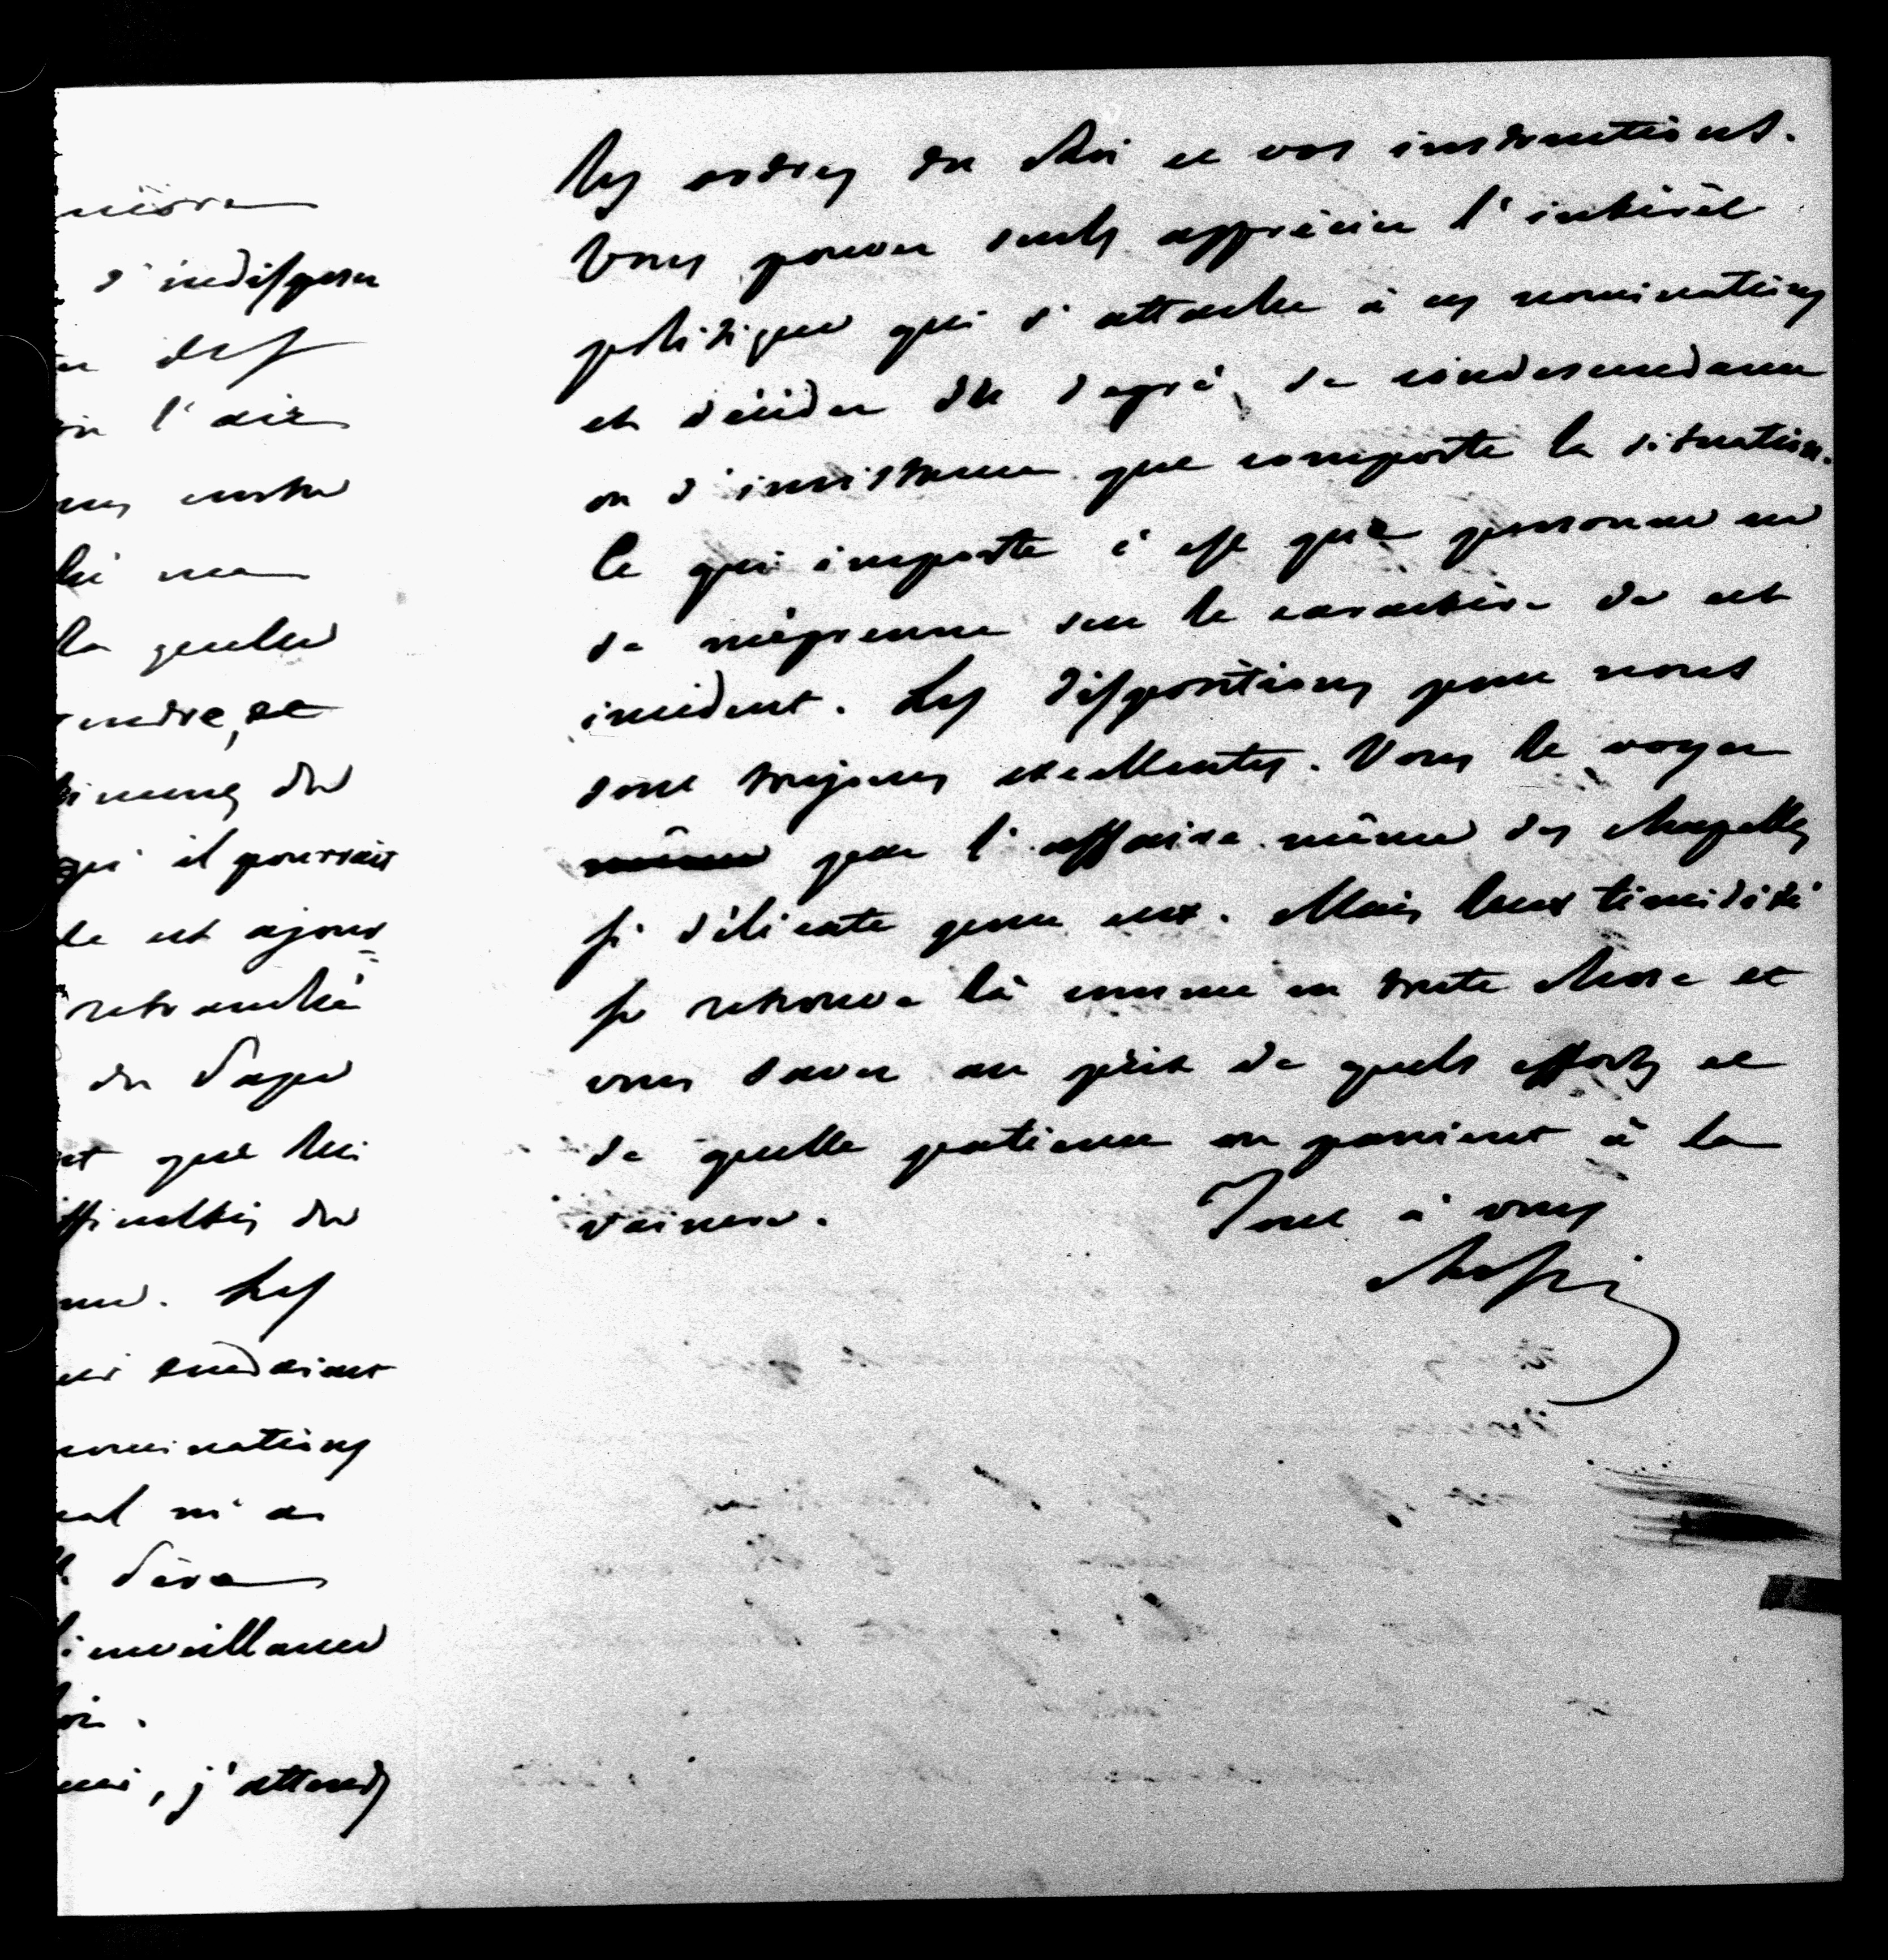 s'indisposer
des
l'air
notre
me
la quelle
du
il pourrait
et ajour
=
retranché
du Pape
que lui
difficultés du
Les
nominations
ni a
Père
bienveillance
j'attends
les ordres du Roi et vos instructions.
Vous pouvez seuls apprécier l'intérêt
politique qui s'attache à ces nominations
et décider du degré de condescendance
ou d'insistance que comporte la situation.
Ce qui importe c'est que personne ne
se méprenne sur le caractère de cet
incident. Les dispositions pour nous
sont toujours excellentes. Vous le voyez
par l'affaire même des chapelles
si délicate pour eux. Mais leur timidité
se retrouve là comme en toute chose et
vous savez au prix de quels efforts et
de quelle patience on parvient à la
vaincre.
Tout à vous
Rossi